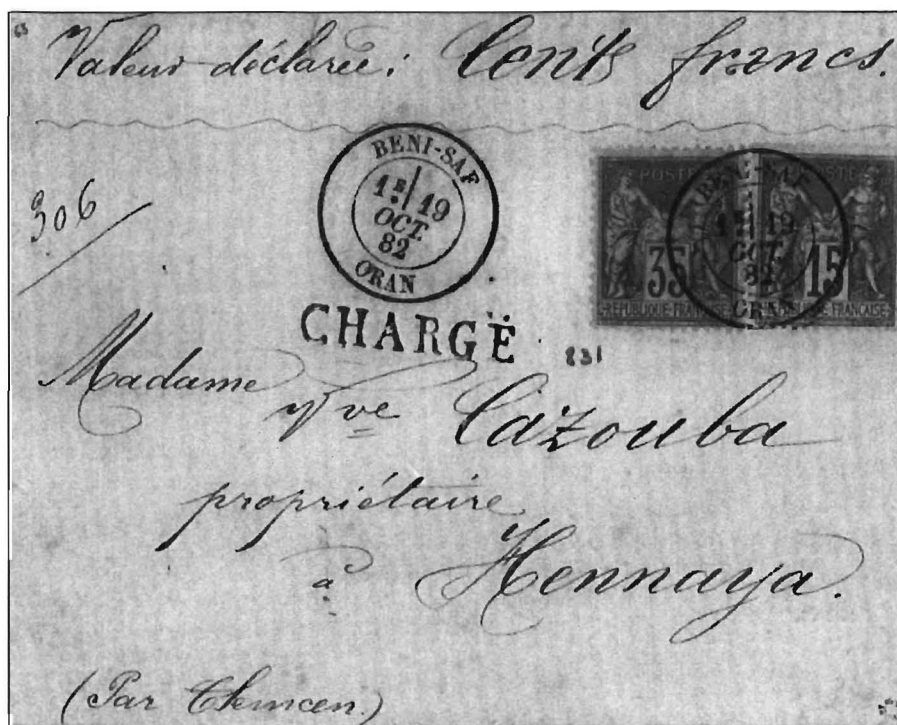 Valeur déclarée: Cents francs.
306
BENI-SAF
1E/ 19
OCT.
82
ORAN
CHARGÉ
POSTES
35
REPUBLIQUE FRANCAISE
15
REPUBLIQUE FRANCAISE
BENI-SAF
1E 19
OCT.
82
ORAN
831
Madame
Vve Cazouba
propriétaire
à Hennaya.
(Par Tlemcen.)